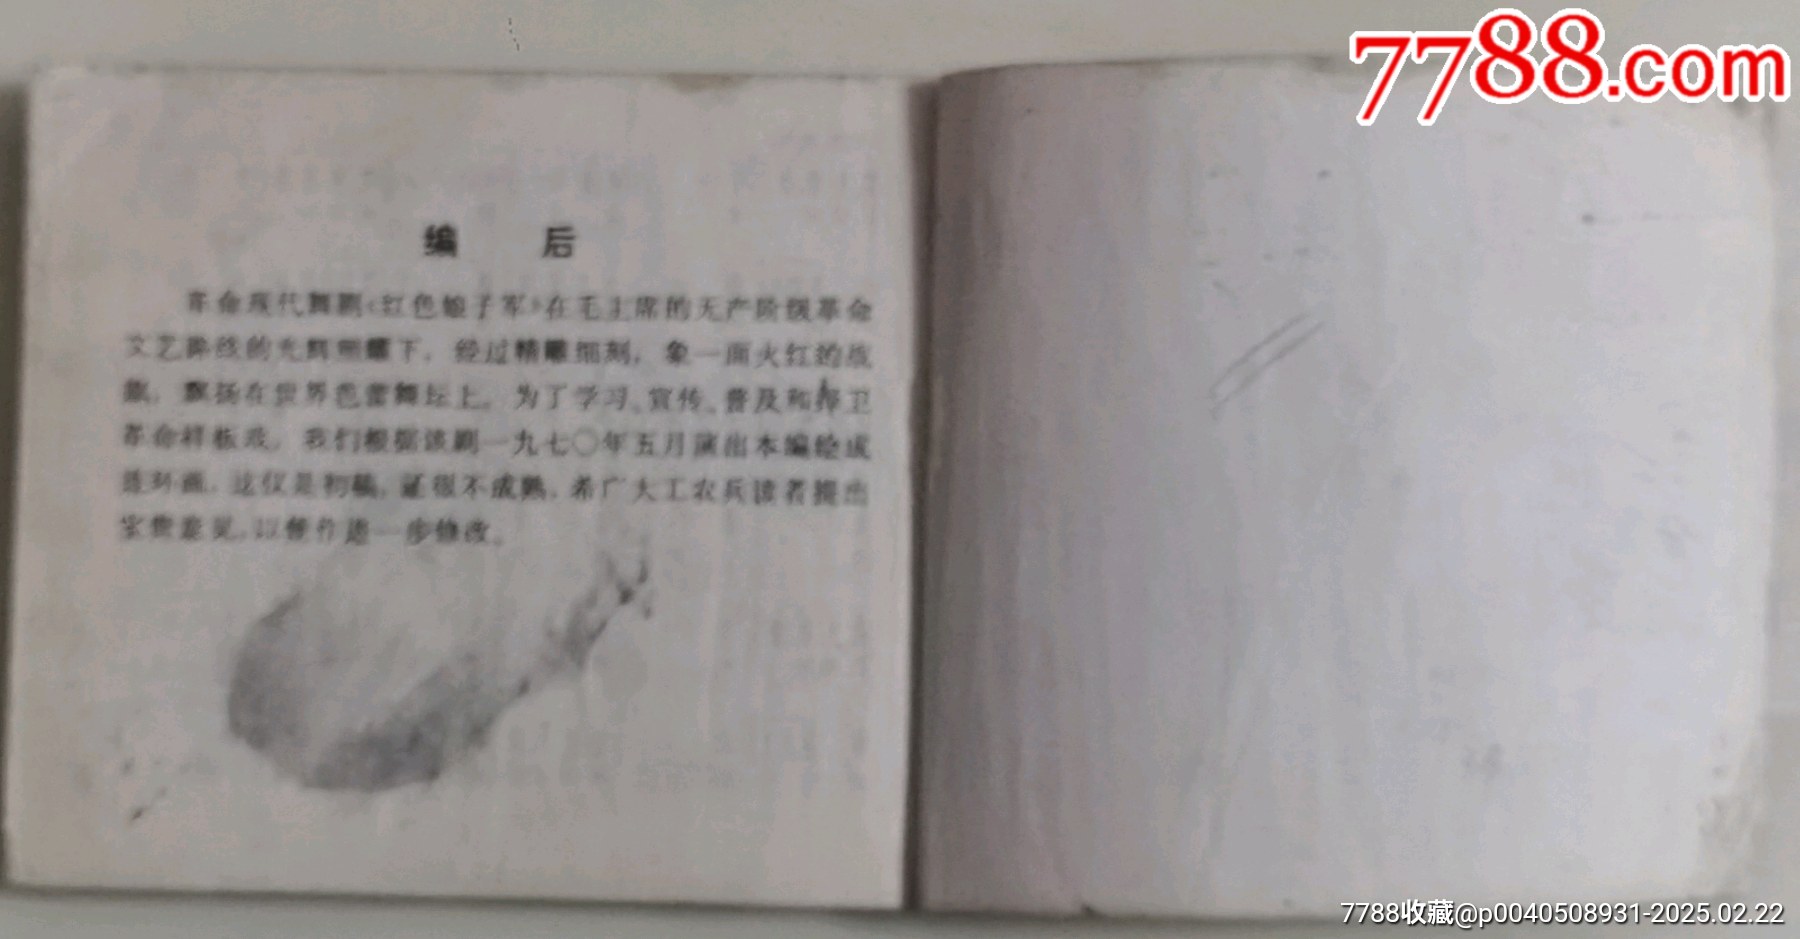 7788.com
编 后
革命现代舞剧《红色娘子军》在毛主席的无产阶级革命
文艺路线的光辉照耀下，经过精雕细刻，象一面火红的战
旗，飘扬在世界芭蕾舞坛上。为了学习、宣传、普及和捍卫
革命样板戏，我们根据该剧一九七〇年五月演出本编绘成
连环画。这仅是初稿，还很不成熟，希广大工农兵读者提出
宝贵意见，以便作进一步修改。
7788收藏@p0040508931-2025.02.22